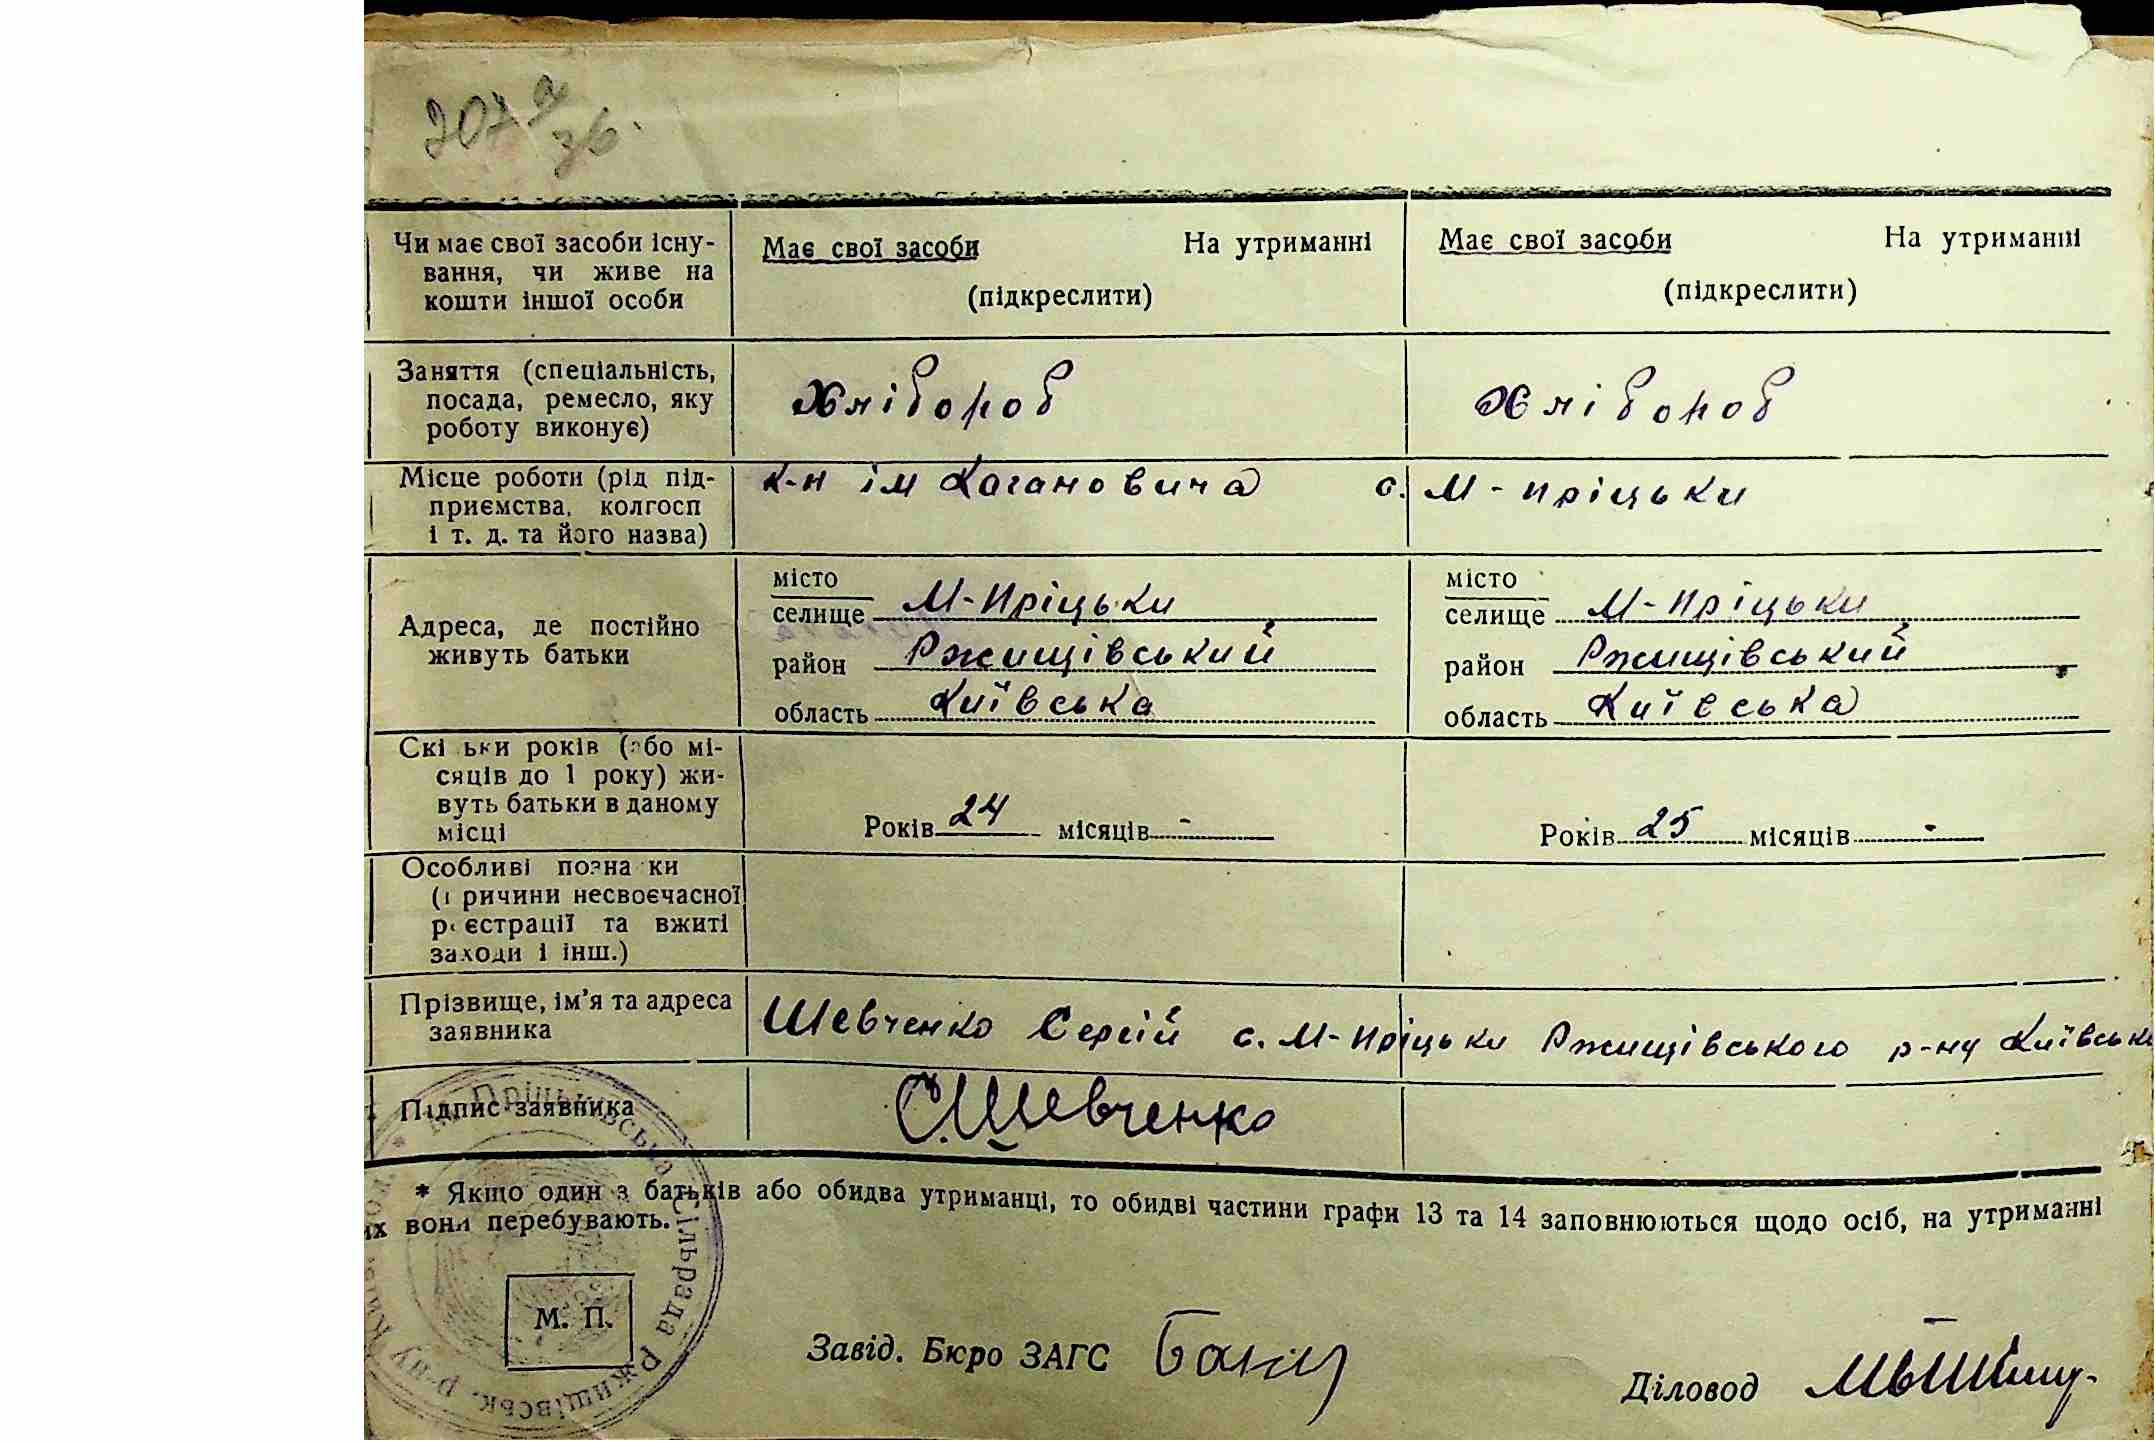 207 зв.
Чи має свої засоби існу-
вання, чи живе на
кошти іншої особи
Має свої засоби На утриманні
(підкреслити)
Має свої засоби На утриманні
(підкреслити)
Заняття (спеціальність,
посада, ремесло, яку
роботу виконує)
Хлібороб
Хлібороб
Місце роботи (рід під-
приємства, колгосп
і т. д. та його назва)
к-п ім Кагановича с. М-Пріцьки
Адреса, де постійно
живуть батьки
місто
селище М-Пріцьки
район Ржищівський
область Київська
місто
селище М-Пріцьки
район Ржищівський
область Київська
Скі ьки років (або мі-
сяців до 1 року) жи-
вуть батьки в даному
місці
Років 24 місяців -
Років 25 місяців -
Особливі позна ки
( ричини несвоєчасної
реєстрації та вжиті
заходи і інш.)
Прізвище, ім'я та адреса
заявника
Шевченко Сергій с. М-Пріцьки Ржищівського р-ну Київськ
Підпис заявника
С.Шевченко
* Якщо один з батьків або обидва утриманці, то обидві частини графи 13 та 14 заповнюються щодо осіб, на утриманні
их вони перебувають.
М. Пріцьківська Сільрада Ржищівськ. р-ну
М. П.
Завід. Бюро ЗАГС
Діловод